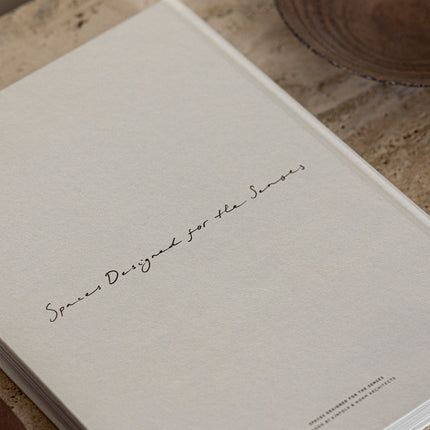 Spaces Designed for the Senses
SPACES DESIGNED FOR THE SENSES
BOOK BY KINFOLK & NORM ARCHITECTS